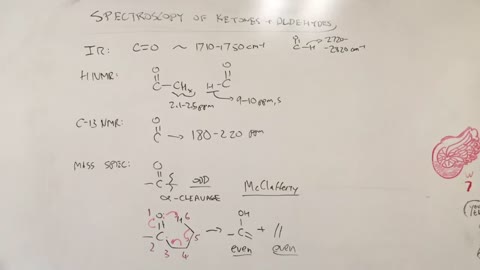 SPECTROSCOPY OF KETONES + ALDEHYDES
IR: C=O ~ 1710-1750cm⁻¹ O C-H 2720-
-2820cm⁻¹
H NMR: O C-CHx H-C O
2.1-2.6ppm 9-10ppm, s
C-13 NMR: O C → 180-220 ppm
MASS SPEC: O -C- ODD McClafferty
α-CLEAVAGE
1 O H 6 OH
-C 5 → -C= + ||
2 3 4 even even
W
7